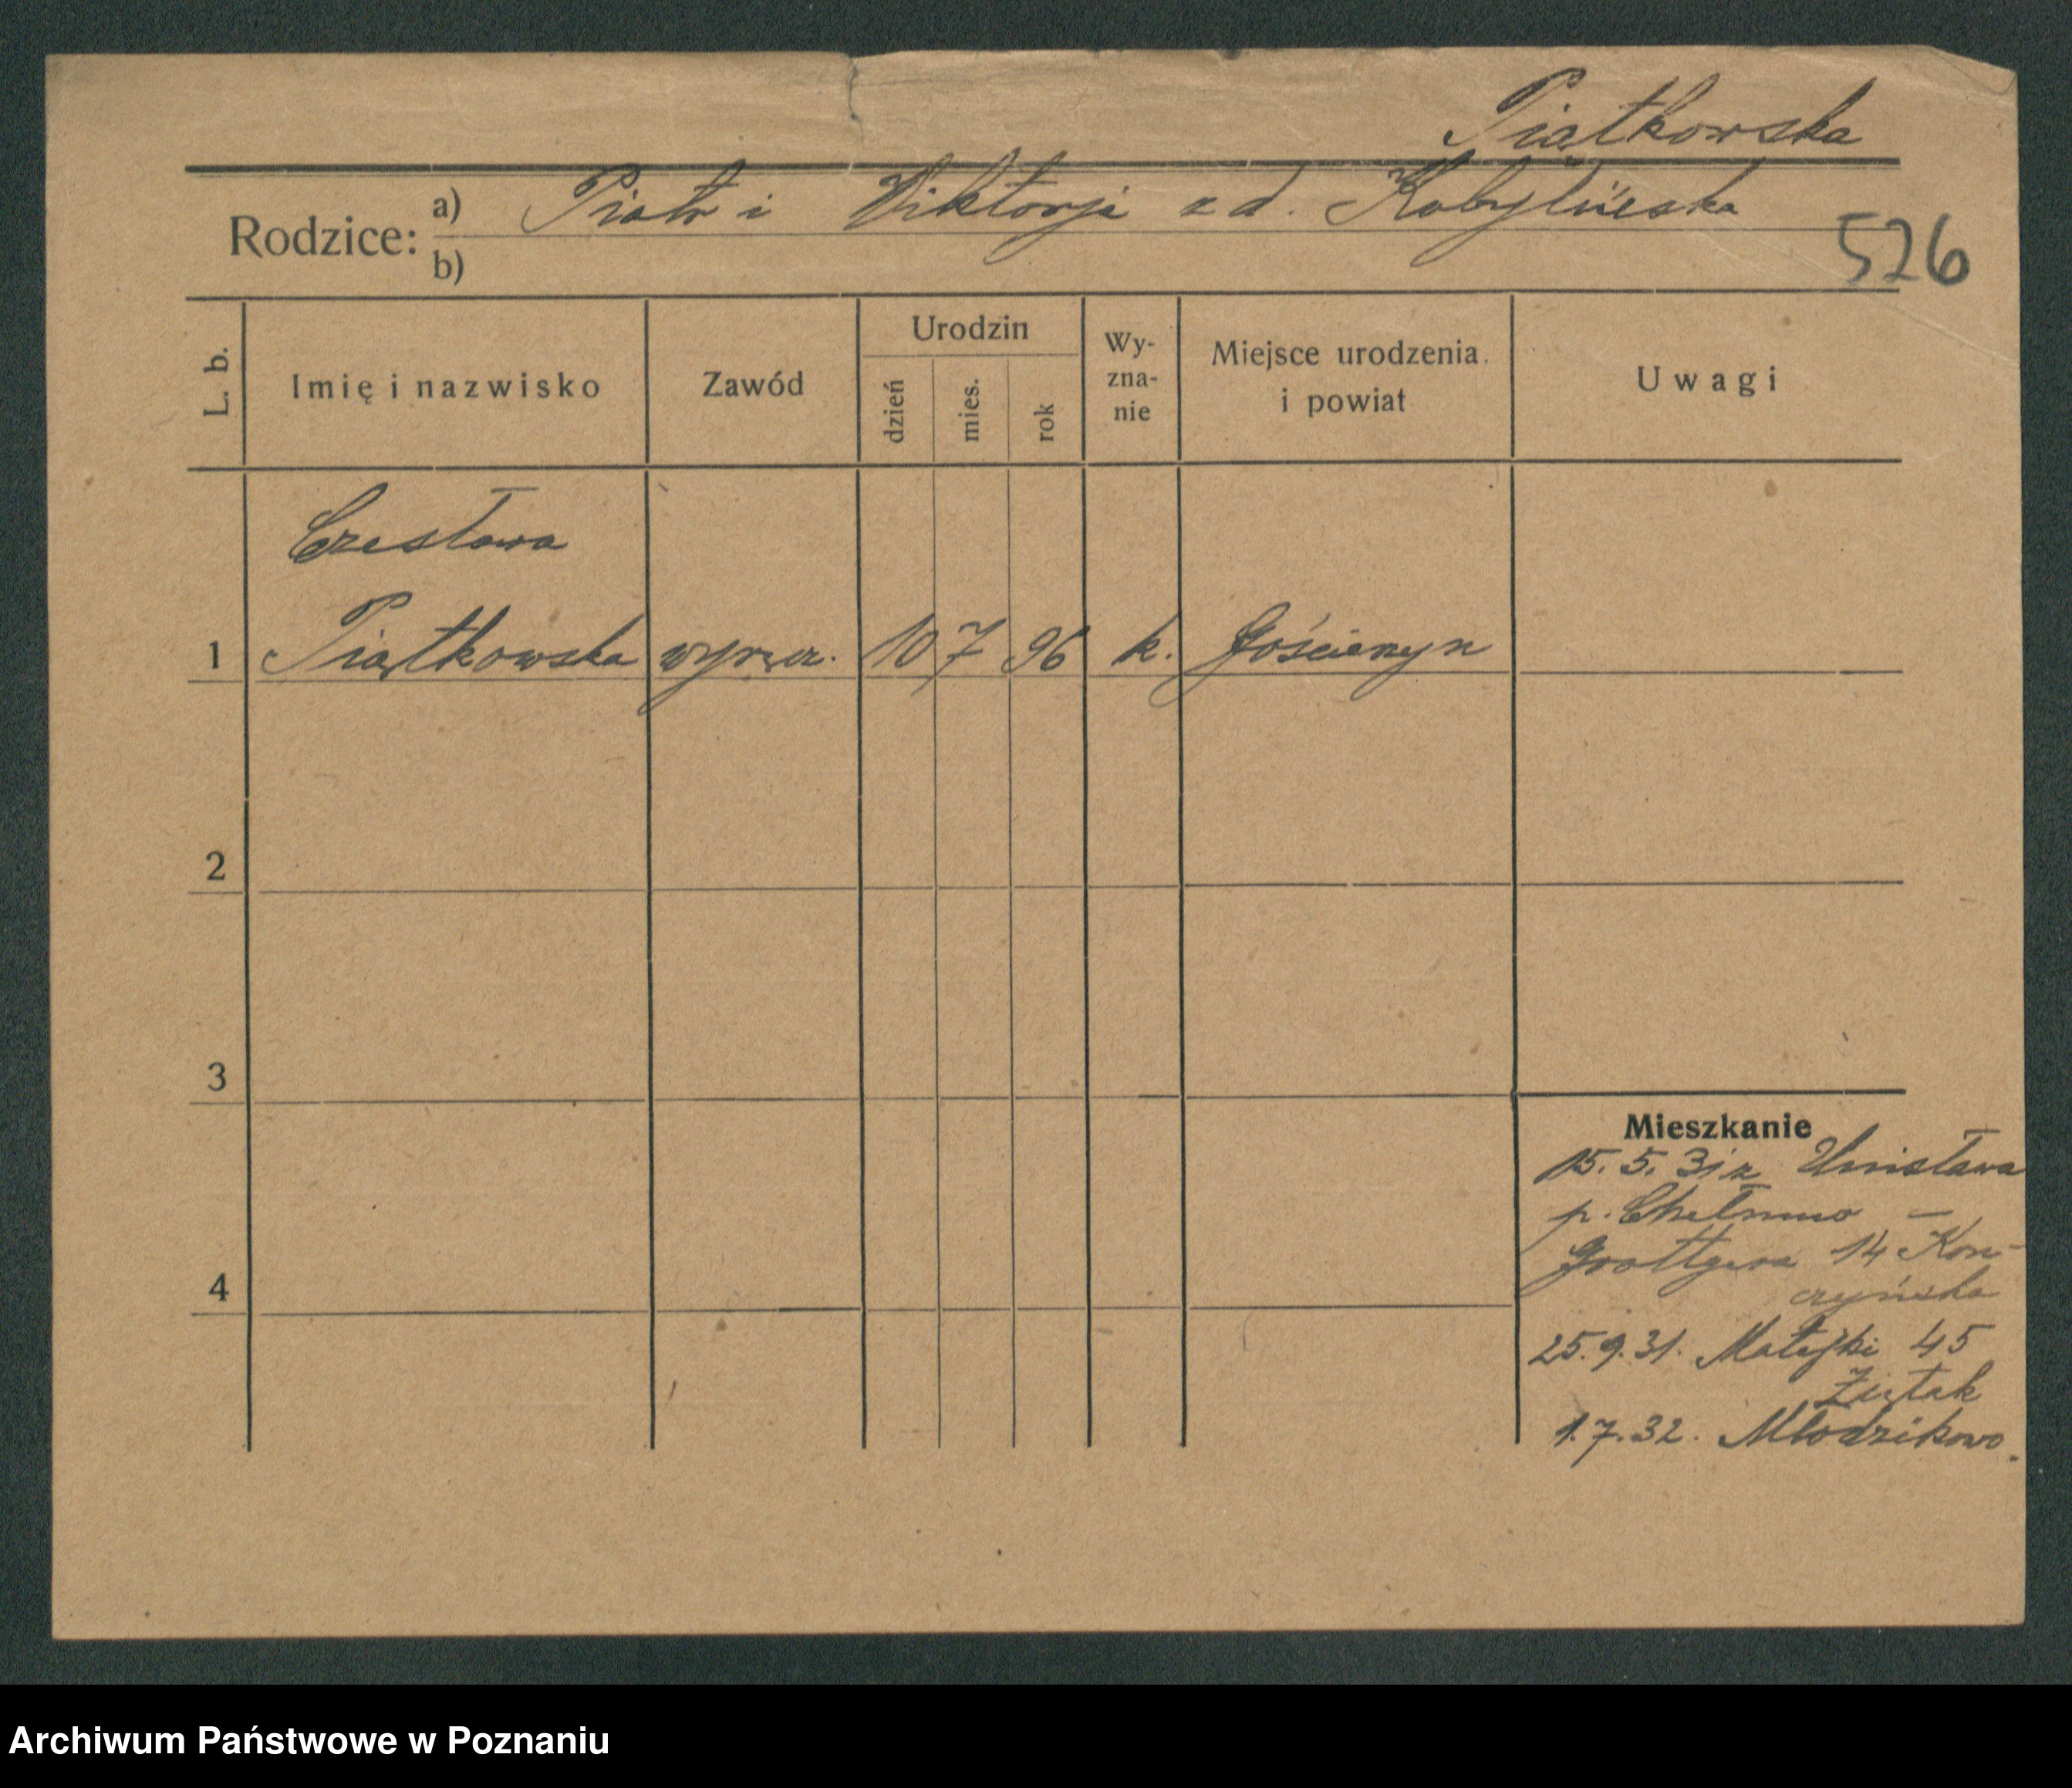 Piątkowska
Rodzice: a) Piotr i Wiktorja z d. Kobylińska
b)
526
L. b.
Imię i nazwisko
Zawód
Urodzin
dzień
mies.
rok
Wy-
zna-
nie
Miejsce urodzenia
i powiat
Uwagi
Czesława
1 Piątkowska 10 7 96 k.
2
3
4
Mieszkanie
15. 5. 31 z Unisława
p. Chełmno —
Grottgera 14 Kon-
czyńska
25. 9. 31. Matejki 45
Ziętak
1. 7. 32. Młodzikowo.
Archiwum Państwowe w Poznaniu